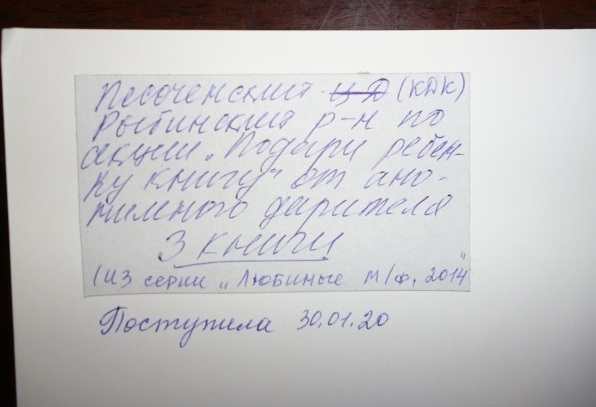 Песоченский ЦД (КДК)
Рыбинский р-н по
акции „Подари ребен-
ку книгу" от ано-
нимного дарителя
3 книги
(из серии „Любимые м/ф, 2014"
Поступила 30.01.20